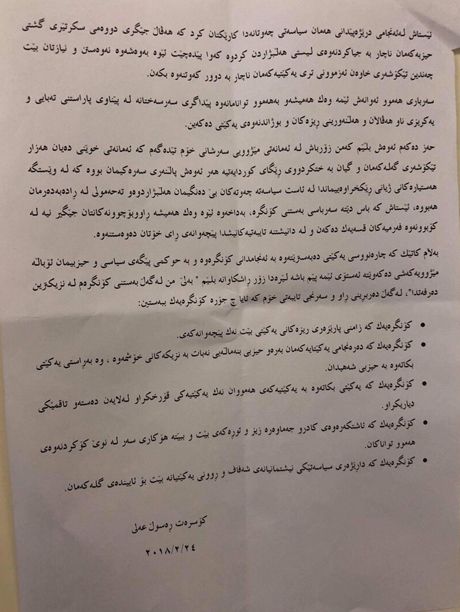 ئێستاش لەئەنجامی درێژەپێدانی هەمان سیاسەتی چەوتانەدا کارێکتان کرد کە هەڤاڵ جێگری دووەمی سکرتێری گشتی
حیزبەکەمان ناچار بە جیاکردنەوەی لیستی هەڵبژاردن کردوە کەوا پێدەچێت ئێوە بەوەشەوە نەوەستن و نیازتان بێت
چەندین تێکۆشەری خاوەن ئەزموونی تری یەکێتیەکەمان ناچار بە دوور کەوتنەوە بکەن.
سەرباری هەموو ئەوانەش ئێمە وەك هەمیشەو بەهەموو توانامانەوە پێداگری سەرسەختانە لە پێناوی پاراستنی تەبایی و
یەکڕیزی ناو هەڤاڵان و هەڵنەوەرینی ڕیزەکان و بوژاندنەوەی یەکێتی دەکەین.
حەز دەکەم ئەوەش بڵێم کەمن زۆرباش لە ئەمانەتی مێژوویی سەرشانی خۆم تێدەگەم کە ئەمانەتی خوێنی دەیان هەزار
تێکۆشەری گەلەکەمان و گیان بە ختکردووی ڕێگای کوردایەتیە هەر ئەوەش پاڵنەری سەرەکیمان بووە کە لە وێستگە
هەستیارەکانی ژیانی ڕێکخراوەییماندا لە ئاست سیاسەتە چەوتەکان بێ دەنگیمان هەڵبژاردوەو تەحەمولی لە ڕادەبەدەرمان
هەبووە، ئێستاش کە باس دێتە سەرباسی بەستنی کۆنگرە، بەداخەوە ئێوە وەك هەمیشە ڕاووبۆچوونەکانتان جێگیر نیە لە
کۆبوونەوە فەرمیەکان قسەیەك دەکەن و لە دانیشتنە تایبەتیەکانیشدا پێچەوانەی ڕای خۆتان دەوەستنەوە.
بەڵام کاتێك کە چارەنووسی یەکێتی دەبەسترێتەوە بە ئەنجامدانی کۆنگرەوە و بە حوکمی پێگەی سیاسی و حیزبیمان ئۆباڵە
مێژووییەکەشی دەکەوێتە ئەستۆی ئێمە پێم باشە لێرەدا زۆر ڕاشکاوانە بڵێم " بەڵێ" من لەگەڵ بەستنی کۆنگرەم لە نزیکترین
دەرفەتدا"، لەگەڵ دەربڕینی ڕاو و سەرنجی تایبەتی خۆم کە ئایا چ جۆرە کۆنگرەیەك ببەستین:
• کۆنگرەیەك کە زامنی پارێزەری ڕیزەکانی یەکێتی بێت نەك پێچەوانەکەی.
• کۆنگرەیەك کە دەرەنجامی یەکێتیەکەمان بەرەو حیزبی بنەماڵەیی نەبات بە نزیکەکانی خۆشەوە ، وە بەڕاستی یەکێتی
بکاتەوە بە حیزبی شەهیدان.
• کۆنگرەیەك کە یەکێتی بکاتەوە بە یەکێتیەکەی هەمووان نەك یەکێتیەکی قۆرخکراو لەلایەن دەستەو تاقمێکی
دیاریکراو.
• کۆنگرەیەك کە ئاشتکەرەوەی کادرو جەماوەرە زیز و تورەکەی بێت و ببێتە هۆکاری سەر لە نوێ کۆکردنەوەی
هەموو تواناکان.
• کۆنگرەیەك کە داڕێژەری سیاسەتێکی نیشتمانیانەی شەفاف و ڕوونی یەکێتیانە بێت بۆ ئاییندەی گەلەکەمان.
کۆسرەت ڕەسوڵ عەلی
٢٠١٨/٢/٢٤